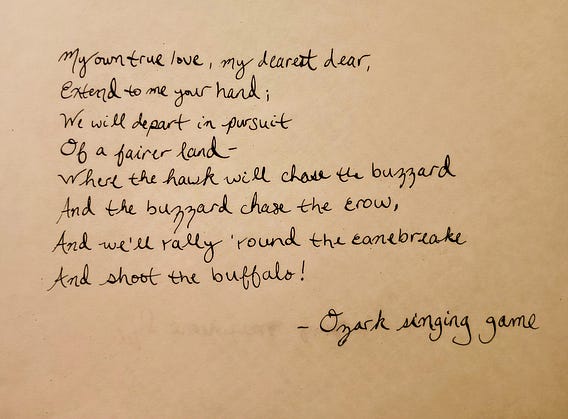 My own true love, my dearest dear,
Extend to me your hand;
We will depart in pursuit
Of a fairer land-
Where the hawk will chase the buzzard
And the buzzard chase the crow,
And we'll rally 'round the canebreake
And shoot the buffalo!
- Ozark singing game